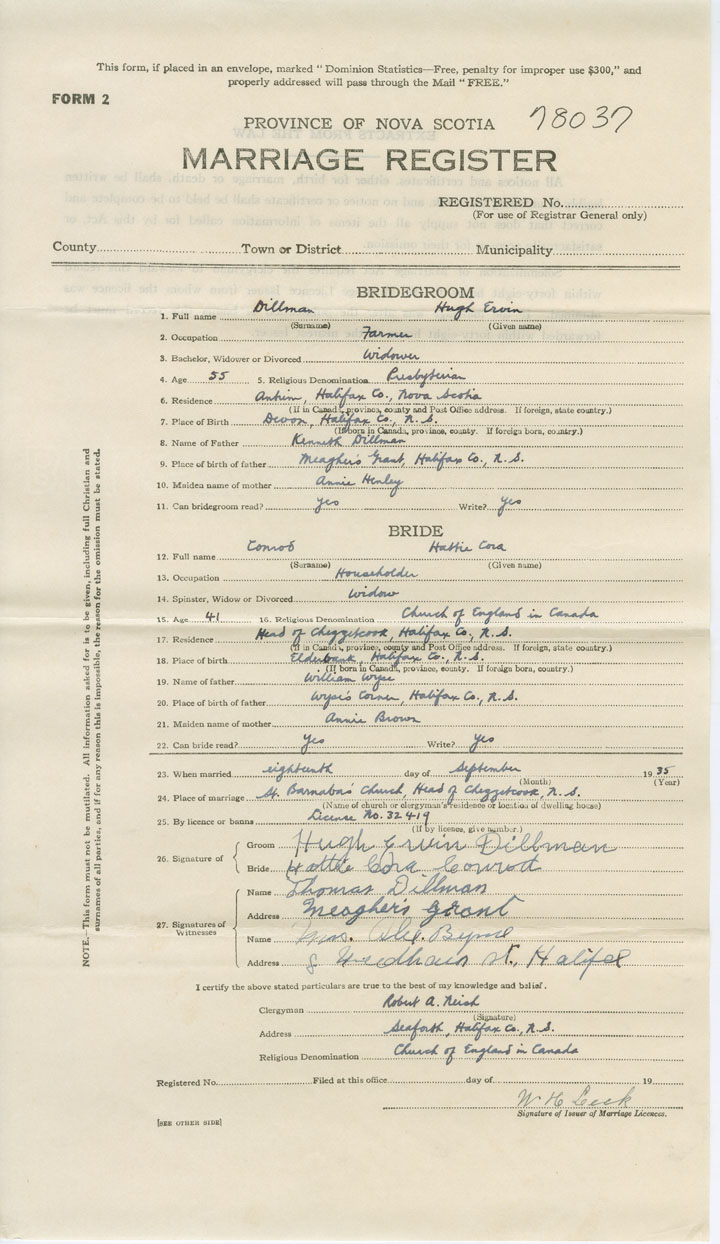 This form, if placed in an envelope, marked "Dominion Statistics—Free, penalty for improper use $300," and
properly addressed will pass through the Mail "FREE."
FORM 2
78037
PROVINCE OF NOVA SCOTIA
MARRIAGE REGISTER
REGISTERED No.
(For use of Registrar General only)
County Town or District Municipality
BRIDEGROOM
1. Full name Dillman Hugh Ervin
(Surname) (Given name)
2. Occupation Farmer
3. Bachelor, Widower or Divorced Widower
4. Age 55 5. Religious Denomination Presbyterian
6. Residence Antrim, Halifax Co., Nova Scotia
(If in Canada, province, county and Post Office address. If foreign, state country.)
7. Place of Birth Devon, Halifax Co., N.S.
(If born in Canada, province, county. If foreign born, country.)
8. Name of Father Kenneth Dillman
9. Place of birth of father Meagher's Grant, Halifax Co., N.S.
10. Maiden name of mother Annie Henley
11. Can bridegroom read? yes Write? yes
BRIDE
12. Full name Conrod Hattie Cora
(Surname) (Given name)
13. Occupation Householder
14. Spinster, Widow or Divorced Widow
15. Age 41 16. Religious Denomination Church of England in Canada
17. Residence Head of Chezzetcook, Halifax Co., N.S.
(If in Canada, province, county and Post Office address. If foreign, state country.)
18. Place of birth Elderbank, Halifax Co., N.S.
(If born in Canada, province, county. If foreign born, country.)
19. Name of father William Wyse
20. Place of birth of father Wyse's Corner, Halifax Co., N.S.
21. Maiden name of mother Annie Brown
22. Can bride read? Yes Write? Yes
23. When married eighteenth day of September 1935
(Month) (Year)
24. Place of marriage St. Barnabas Church, Head of Chezzetcook, N.S.
(Name of church or clergyman's residence or location of dwelling house)
25. By licence or banns License No. 32419
(If by licence, give number.)
26. Signature of
Groom Hugh Ervin Dillman
Bride Hattie Cora Conrod
27. Signatures of Witnesses
Name Thomas Dillman
Address Meagher's Grant
Name Mrs. Alex. Byrne
Address 8 St., Halifax
I certify the above stated particulars are true to the best of my knowledge and belief.
Clergyman Robert A.
(Signature)
Address Seaforth, Halifax Co., N.S.
Religious Denomination Church of England in Canada
Registered No. Filed at this office day of 19
W H Leck
Signature of Issuer of Marriage Licences.
[SEE OTHER SIDE]
NOTE.—This form must not be mutilated. All information asked for is to be given, including full Christian and
surnames of all parties, and if for any reason this is impossible, the reason for the omission must be stated.